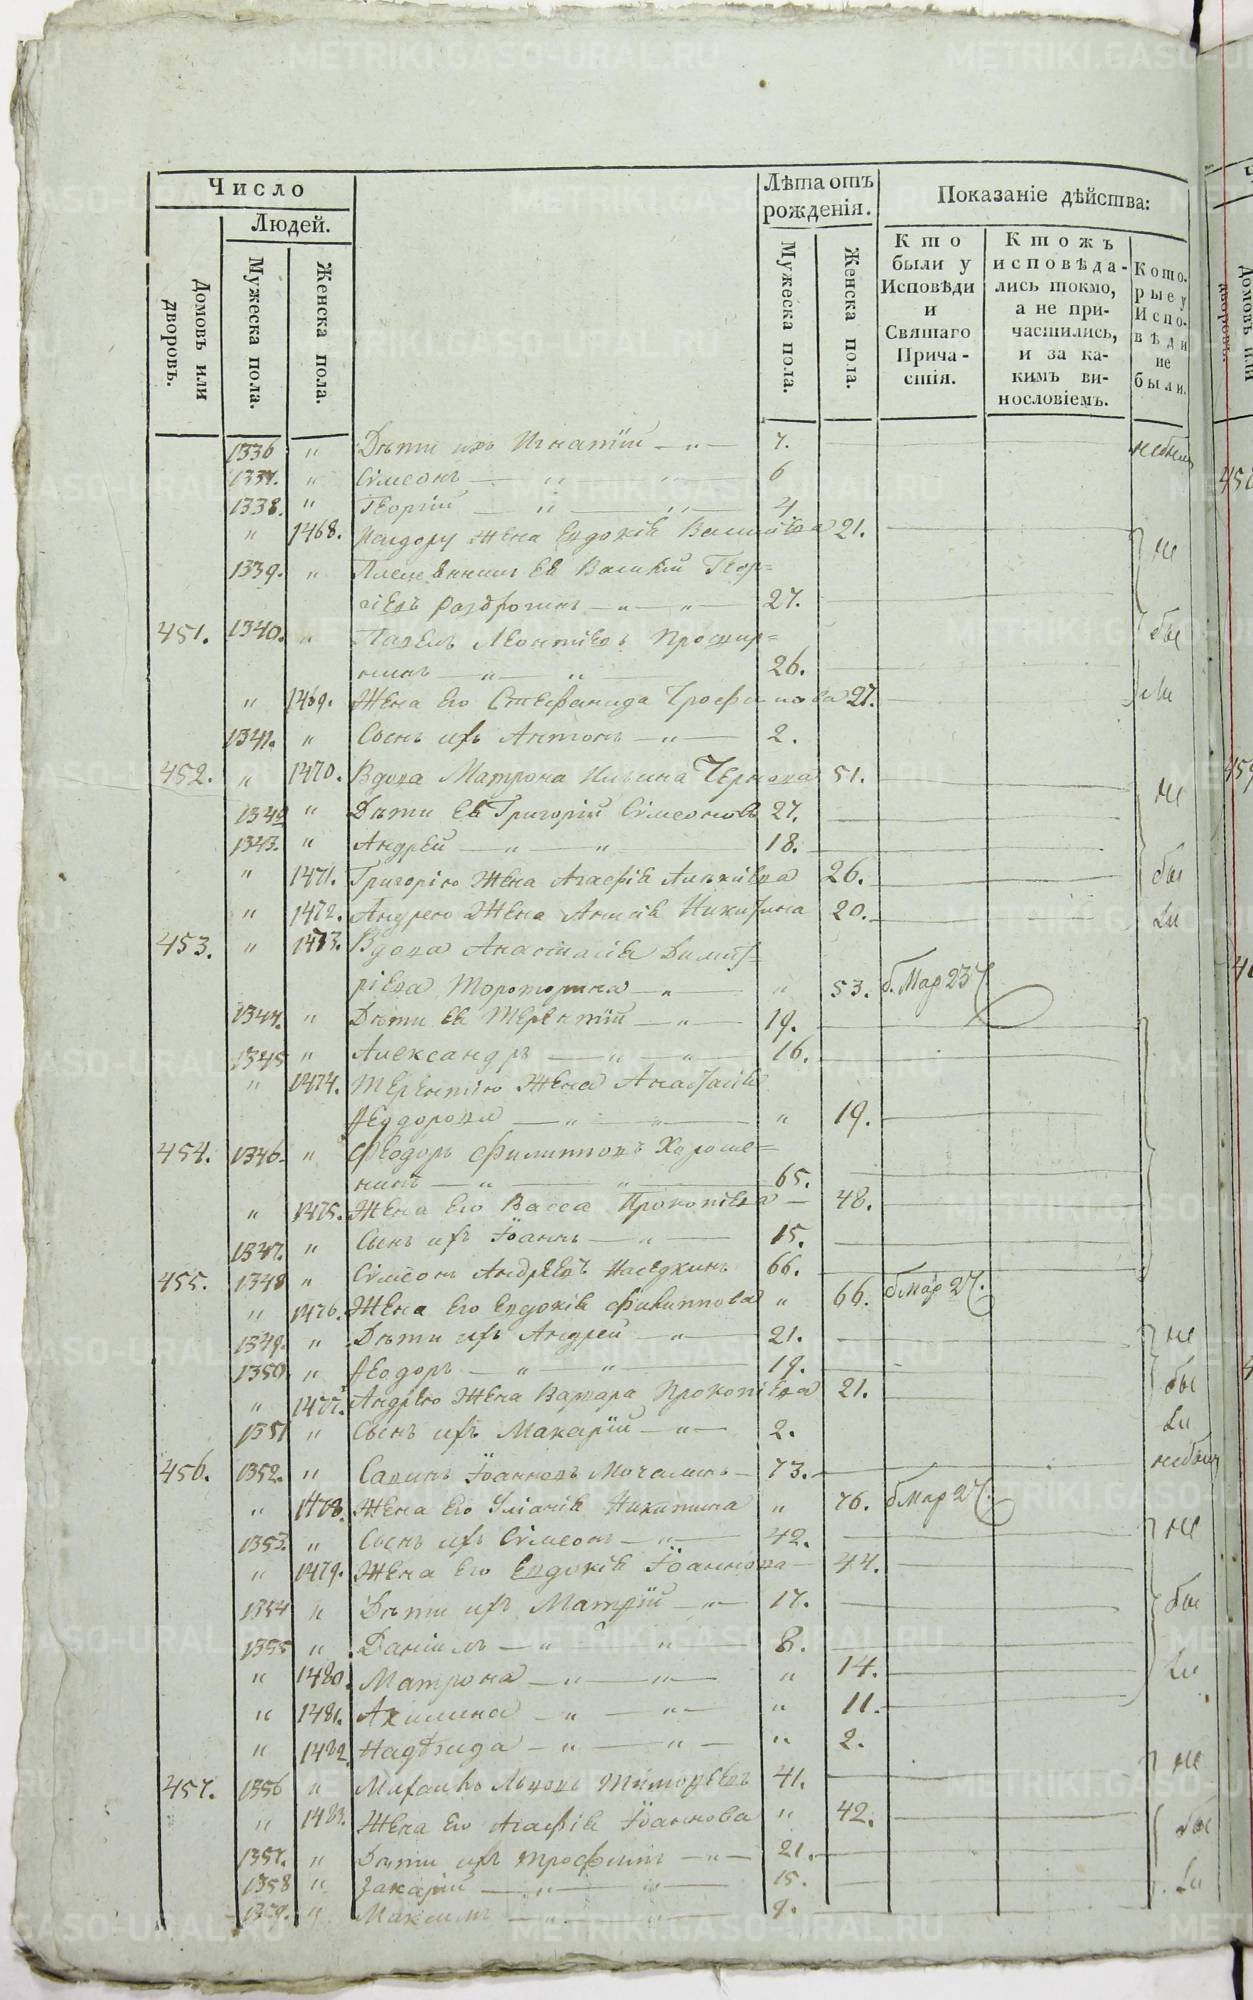 Число
Людей.
Домовъ или дворовъ.
Мужеска пола.
Женска пола.
Лѣта отъ рожденія.
Мужеска пола.
Женска пола.
Показаніе дѣйства:
Кто были у Исповѣди и Святаго Причастія.
Ктожъ исповѣдались токмо, а не причастились, и за какимъ винословіемъ.
Которые у Исповѣди не были.
1336 " Дѣти ихъ Игнатій — " — 7. небыли
1337. " Сѵмеонъ — " — " — 6
1338. " Георгій — " — " — 4
" 1468. жена Евдокія 21.
1339. " Ея Василій Геор=
гіевъ — " — " — 27.
451. 1340. " Павелъ Леонтіевъ
— " — " — 26.
" 1469. Жена Его Стефанида Трофимова 27.
1341. " Сынъ ихъ Антонъ — " — 2.
не бы ли
452. " 1470. Вдова Матрона Ильина Чернова 51.
1342 " Дѣти Ея Григорій Сѵмеоновъ 27.
1343. " Андрей — " — " — 18.
" 1471. Григорію Жена Агафія 26.
" 1472. Андрею Жена Никитина 20.
не бы ли
453. " 1473. Вдова Анастасія Димит=
ріева — " — " 53. б. Мар 27
1344. " Дѣти Ея Терентій — " — 19.
1345 " Александръ — " — " — 16.
" 1474. Терентію Жена Анастасія
Ѳеодорова — " — " — " 19.
454. 1346. " Ѳеодоръ Филипповъ Хороше=
нинъ — " — " — 65.
" 1475. Жена Его Васса Прокопіева — 48.
1347. " Сынъ ихъ Іоаннъ — " — 15.
455. 1348 " Сѵмеонъ Андреевъ Наседкинъ 66.
" 1476. Жена Его Евдокія Филиппова " 66. б Мар 27.
1349. " Дѣти ихъ Андрей — " — 21.
1350. " Ѳеодоръ — " — " — 19.
" 1477. Андрею Жена Варвара Прокопіева 21.
1351 " Сынъ ихъ Макарій — " — 2.
не бы ли
456. 1352. " Савинъ Іоанновъ Мочалинъ — 73. небыли
" 1478. Жена Его Уліанія Никитина " 76. б Мар 27.
1353. " Сынъ ихъ Сѵмеонъ — " — 42.
" 1479. Жена Его Евдокія Іоаннова — 44.
1354 " Дѣти ихъ — " — 17.
1355 " Даніилъ — " — " — 8.
" 1480. Матрона — " — " — " 14.
" 1481. Акилина — " — " — " 11.
" 1482 Надѣжда — " — " — " 2.
не бы ли
457. 1356 " Михаилъ Львовъ Тимофѣевъ 41.
" 1483. Жена Его Агафія Іоаннова " 42.
1357. " Дѣти ихъ Трофимъ — " — 21.
1358 " Захарій — " — " — 15.
1359. " Максимъ — " — " — 9.
не бы ли
METRIKI.GASO-URAL.RU